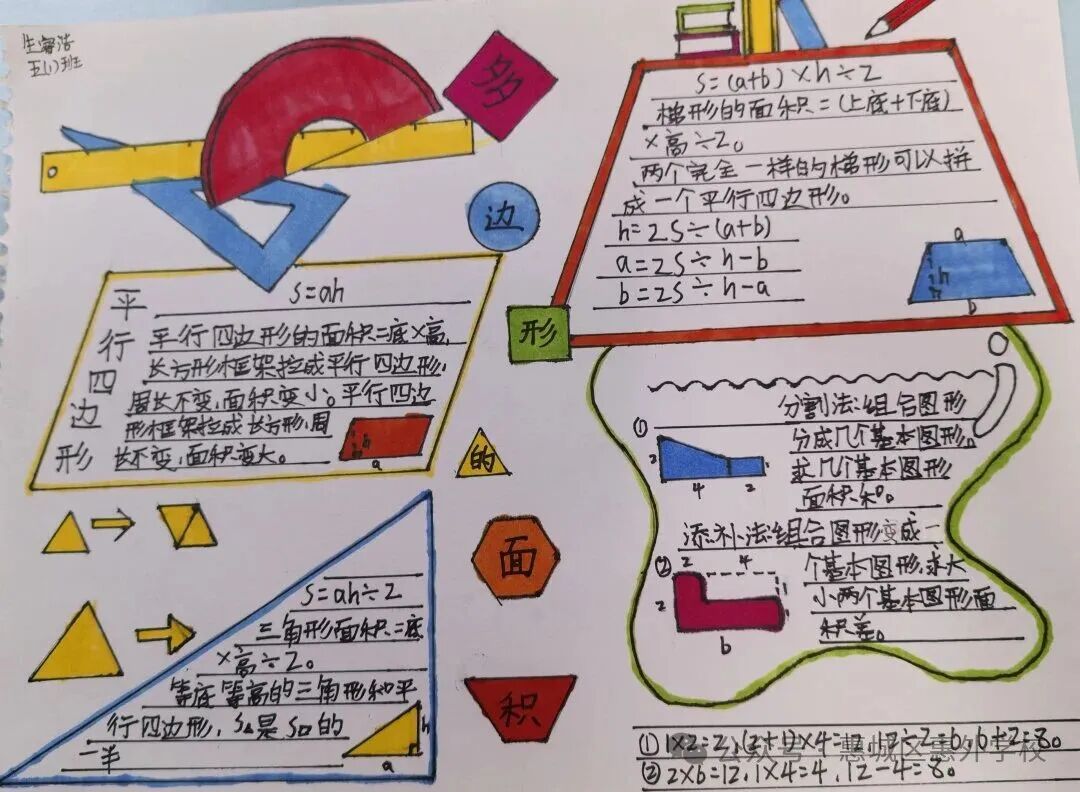 生睿浩
五(1)班
多
边
形
的
面
积
平行四边形
S=ah
平行四边形的面积=底×高,
长方形框架拉成平行四边形,
周长不变,面积变小。平行四边
形框架拉成长方形,周
长不变,面积变大。
h
a
S=(a+b)×h÷2
梯形的面积=(上底+下底)
×高÷2。
两个完全一样的梯形可以拼
成一个平行四边形。
h=2S÷(a+b)
a=2S÷h-b
b=2S÷h-a
a
h
b
S=ah÷2
三角形面积=底
×高÷2。
等底等高的三角形和平
行四边形,S△是S▱的
一半
h
a
分割法:组合图形
分成几个基本图形,
求几个基本图形
面积和。
①
2
1
4
2
添补法:组合图形变成一
个基本图形,求大
小两个基本图形面
积差。
②
2
4
2
6
①1×2=2,(2+1)×4=12,12÷2=6,6+2=8。
②2×6=12,1×4=4,12-4=8。
公众号·惠城区惠外学校